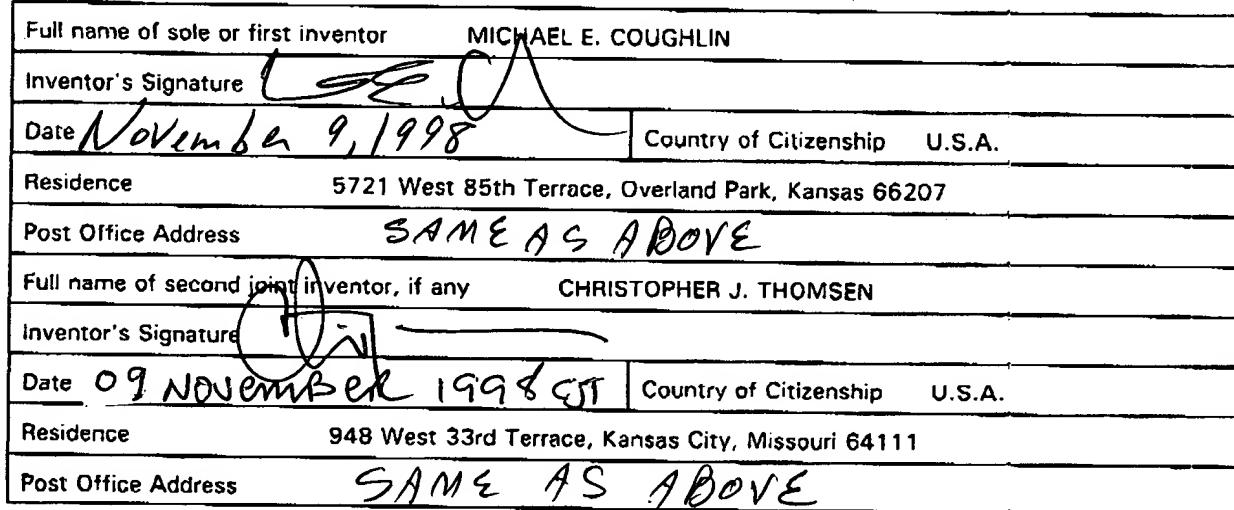 Full name of sole or first inventor MICHAEL E. COUGHLIN
Inventor's Signature
Date November 9, 1998 Country of Citizenship U.S.A.
Residence 5721 West 85th Terrace, Overland Park, Kansas 66207
Post Office Address SAME AS ABOVE
Full name of second joint inventor, if any CHRISTOPHER J. THOMSEN
Inventor's Signature
Date 09 NOVEMBER 1998 CJT Country of Citizenship U.S.A.
Residence 948 West 33rd Terrace, Kansas City, Missouri 64111
Post Office Address SAME AS ABOVE